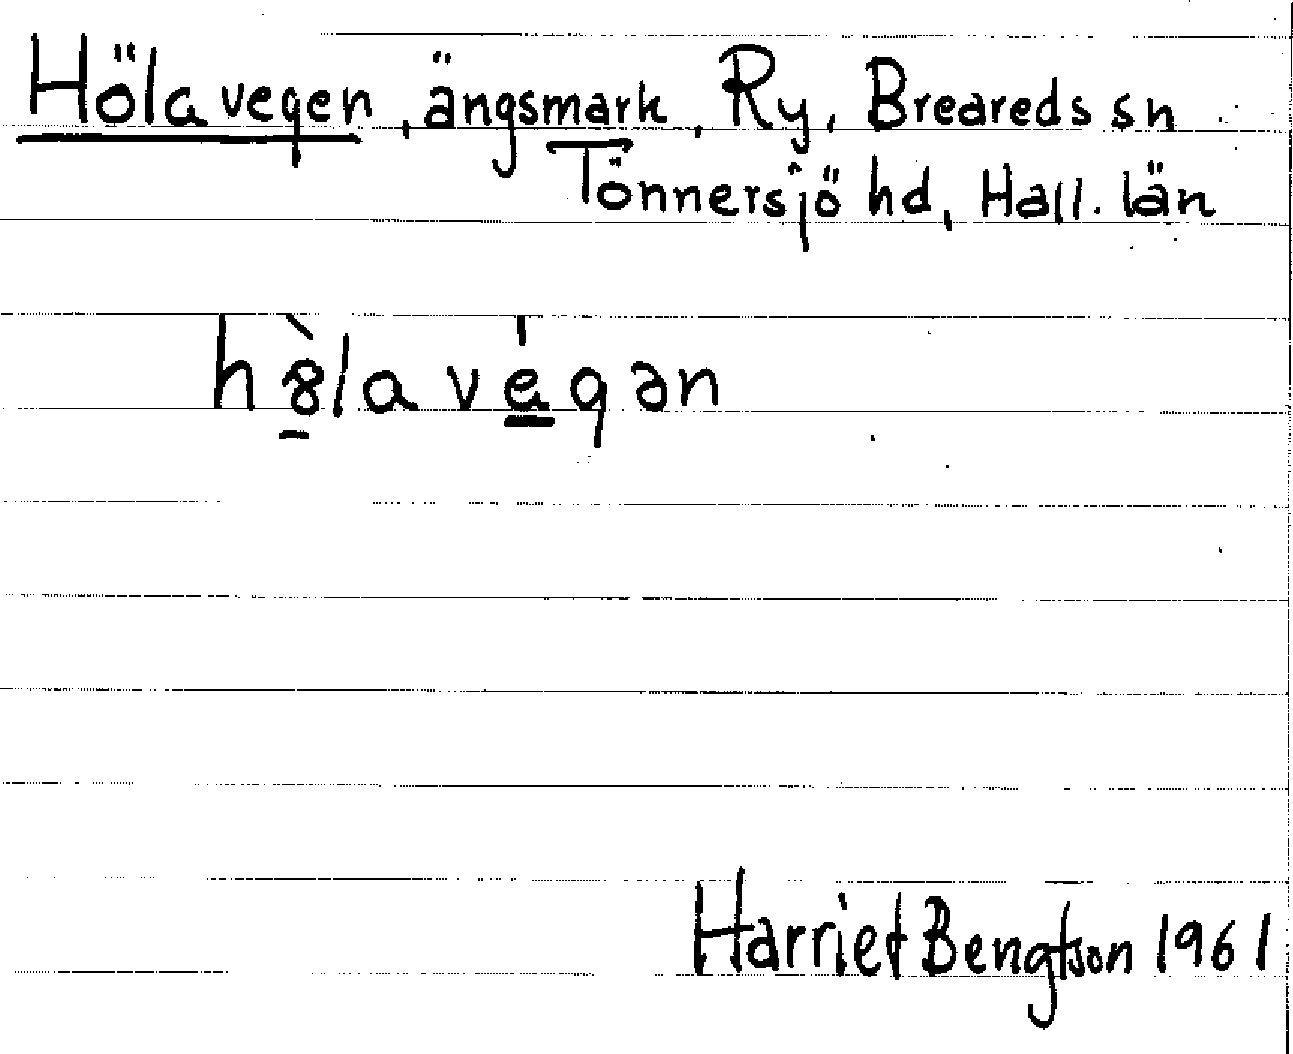 Hölavegen, ängsmark, Ry, Breareds sn
Tönnersjö hd, Hall. län
hòlavégən
Harriet Bengtson 1961